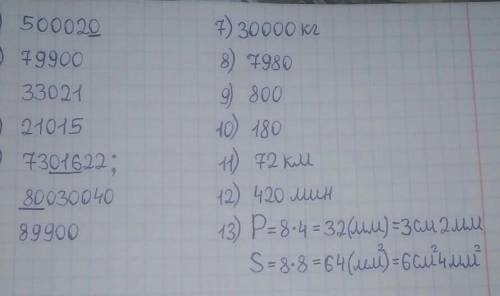 ) 500020
) 79900
33021
) 21015
) 7301622;
80030040
89900
7) 30000 кг
8) 7980
9) 800
10) 180
11) 72 км
12) 420 мин
13) P=8·4=32(мм)=3см 2мм
S=8·8=64(мм²)=6см²4мм²